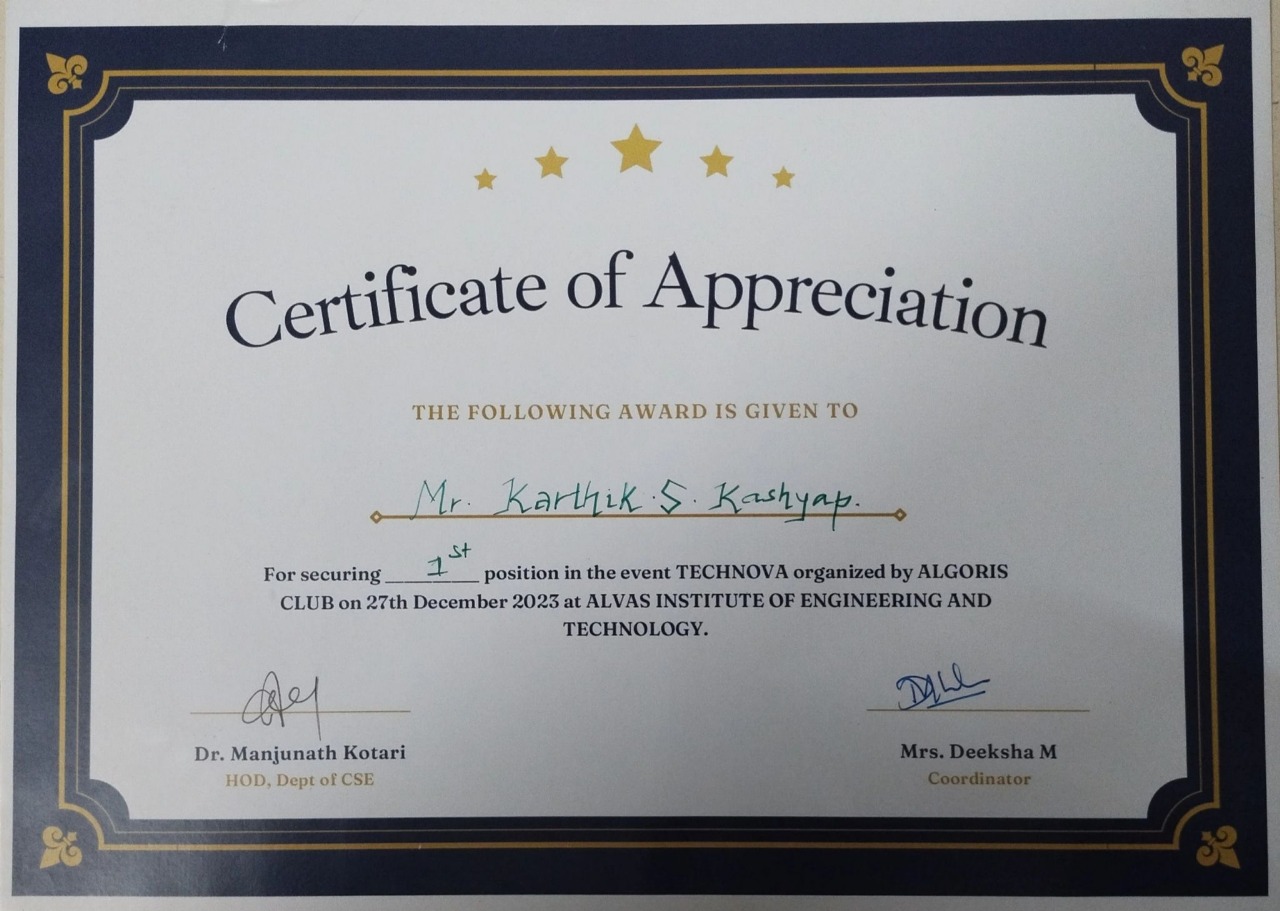 Certificate of Appreciation
THE FOLLOWING AWARD IS GIVEN TO
Mr. Karthik.S. Kashyap.
For securing 1st position in the event TECHNOVA organized by ALGORIS
CLUB on 27th December 2023 at ALVAS INSTITUTE OF ENGINEERING AND
TECHNOLOGY.
Dr. Manjunath Kotari
HOD, Dept of CSE
Mrs. Deeksha M
Coordinator